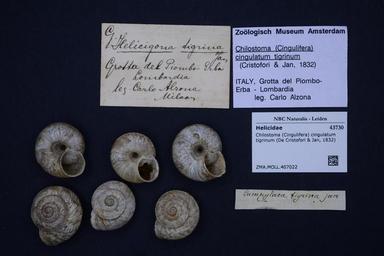 G.
V. Helicigona tigrina
Jan
Grotta del Piombo Erba
Lombardia
leg Carlo Alzona
Milaan
Zoölogisch Museum Amsterdam
Chilostoma (Cingulifera)
cingulatum tigrinum
(Cristofori & Jan, 1832)
ITALY, Grotta del Piombo-
Erba - Lombardia
leg. Carlo Alzona
NBC Naturalis - Leiden
Helicidae 43730
Chilostoma (Cingulifera) cingulatum
tigrinum (De Cristofori & Jan, 1832)
ZMA.MOLL.407022
Campylaea tigrina Jan